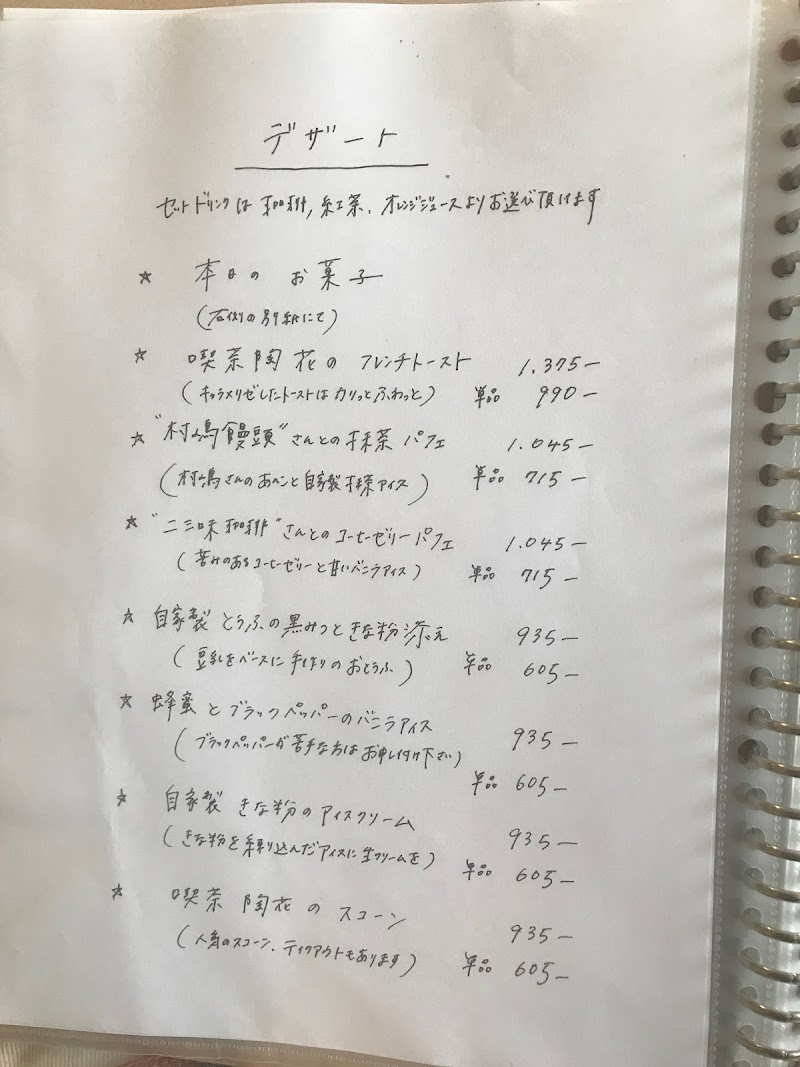 デザート
セットドリンクは 珈琲, 紅茶、オレンジジュースよりお選び頂けます
☆ 本日の お菓子
(右側の別紙にて)
☆ 喫茶陶花の フレンチトースト 1.375－
(キャラメリゼしたトーストは カリっとふわっと) 単品 990－
☆ "村嶋饅頭"さんとの抹茶 パフェ 1.045－
(村嶋さんのあんこと自家製抹茶アイス) 単品 715－
☆ "二三味珈琲"さんとのコーヒーゼリーパフェ 1.045－
(苦みのあるコーヒーゼリーと甘いバニラアイス) 単品 715－
☆ 自家製 とうふの黒みつときな粉添え 935－
(豆乳をベースに手作りのおとうふ) 単品 605－
☆ 蜂蜜とブラックペッパーのバニラアイス 935－
(ブラックペッパーが苦手な方は お申し付け下さい)
単品 605－
☆ 自家製 きな粉のアイスクリーム 935－
(きな粉を練り込んだアイスに生クリームを) 単品 605－
☆ 喫茶 陶花の スコーン 935－
(人気のスコーン、テイクアウトもあります) 単品 605－